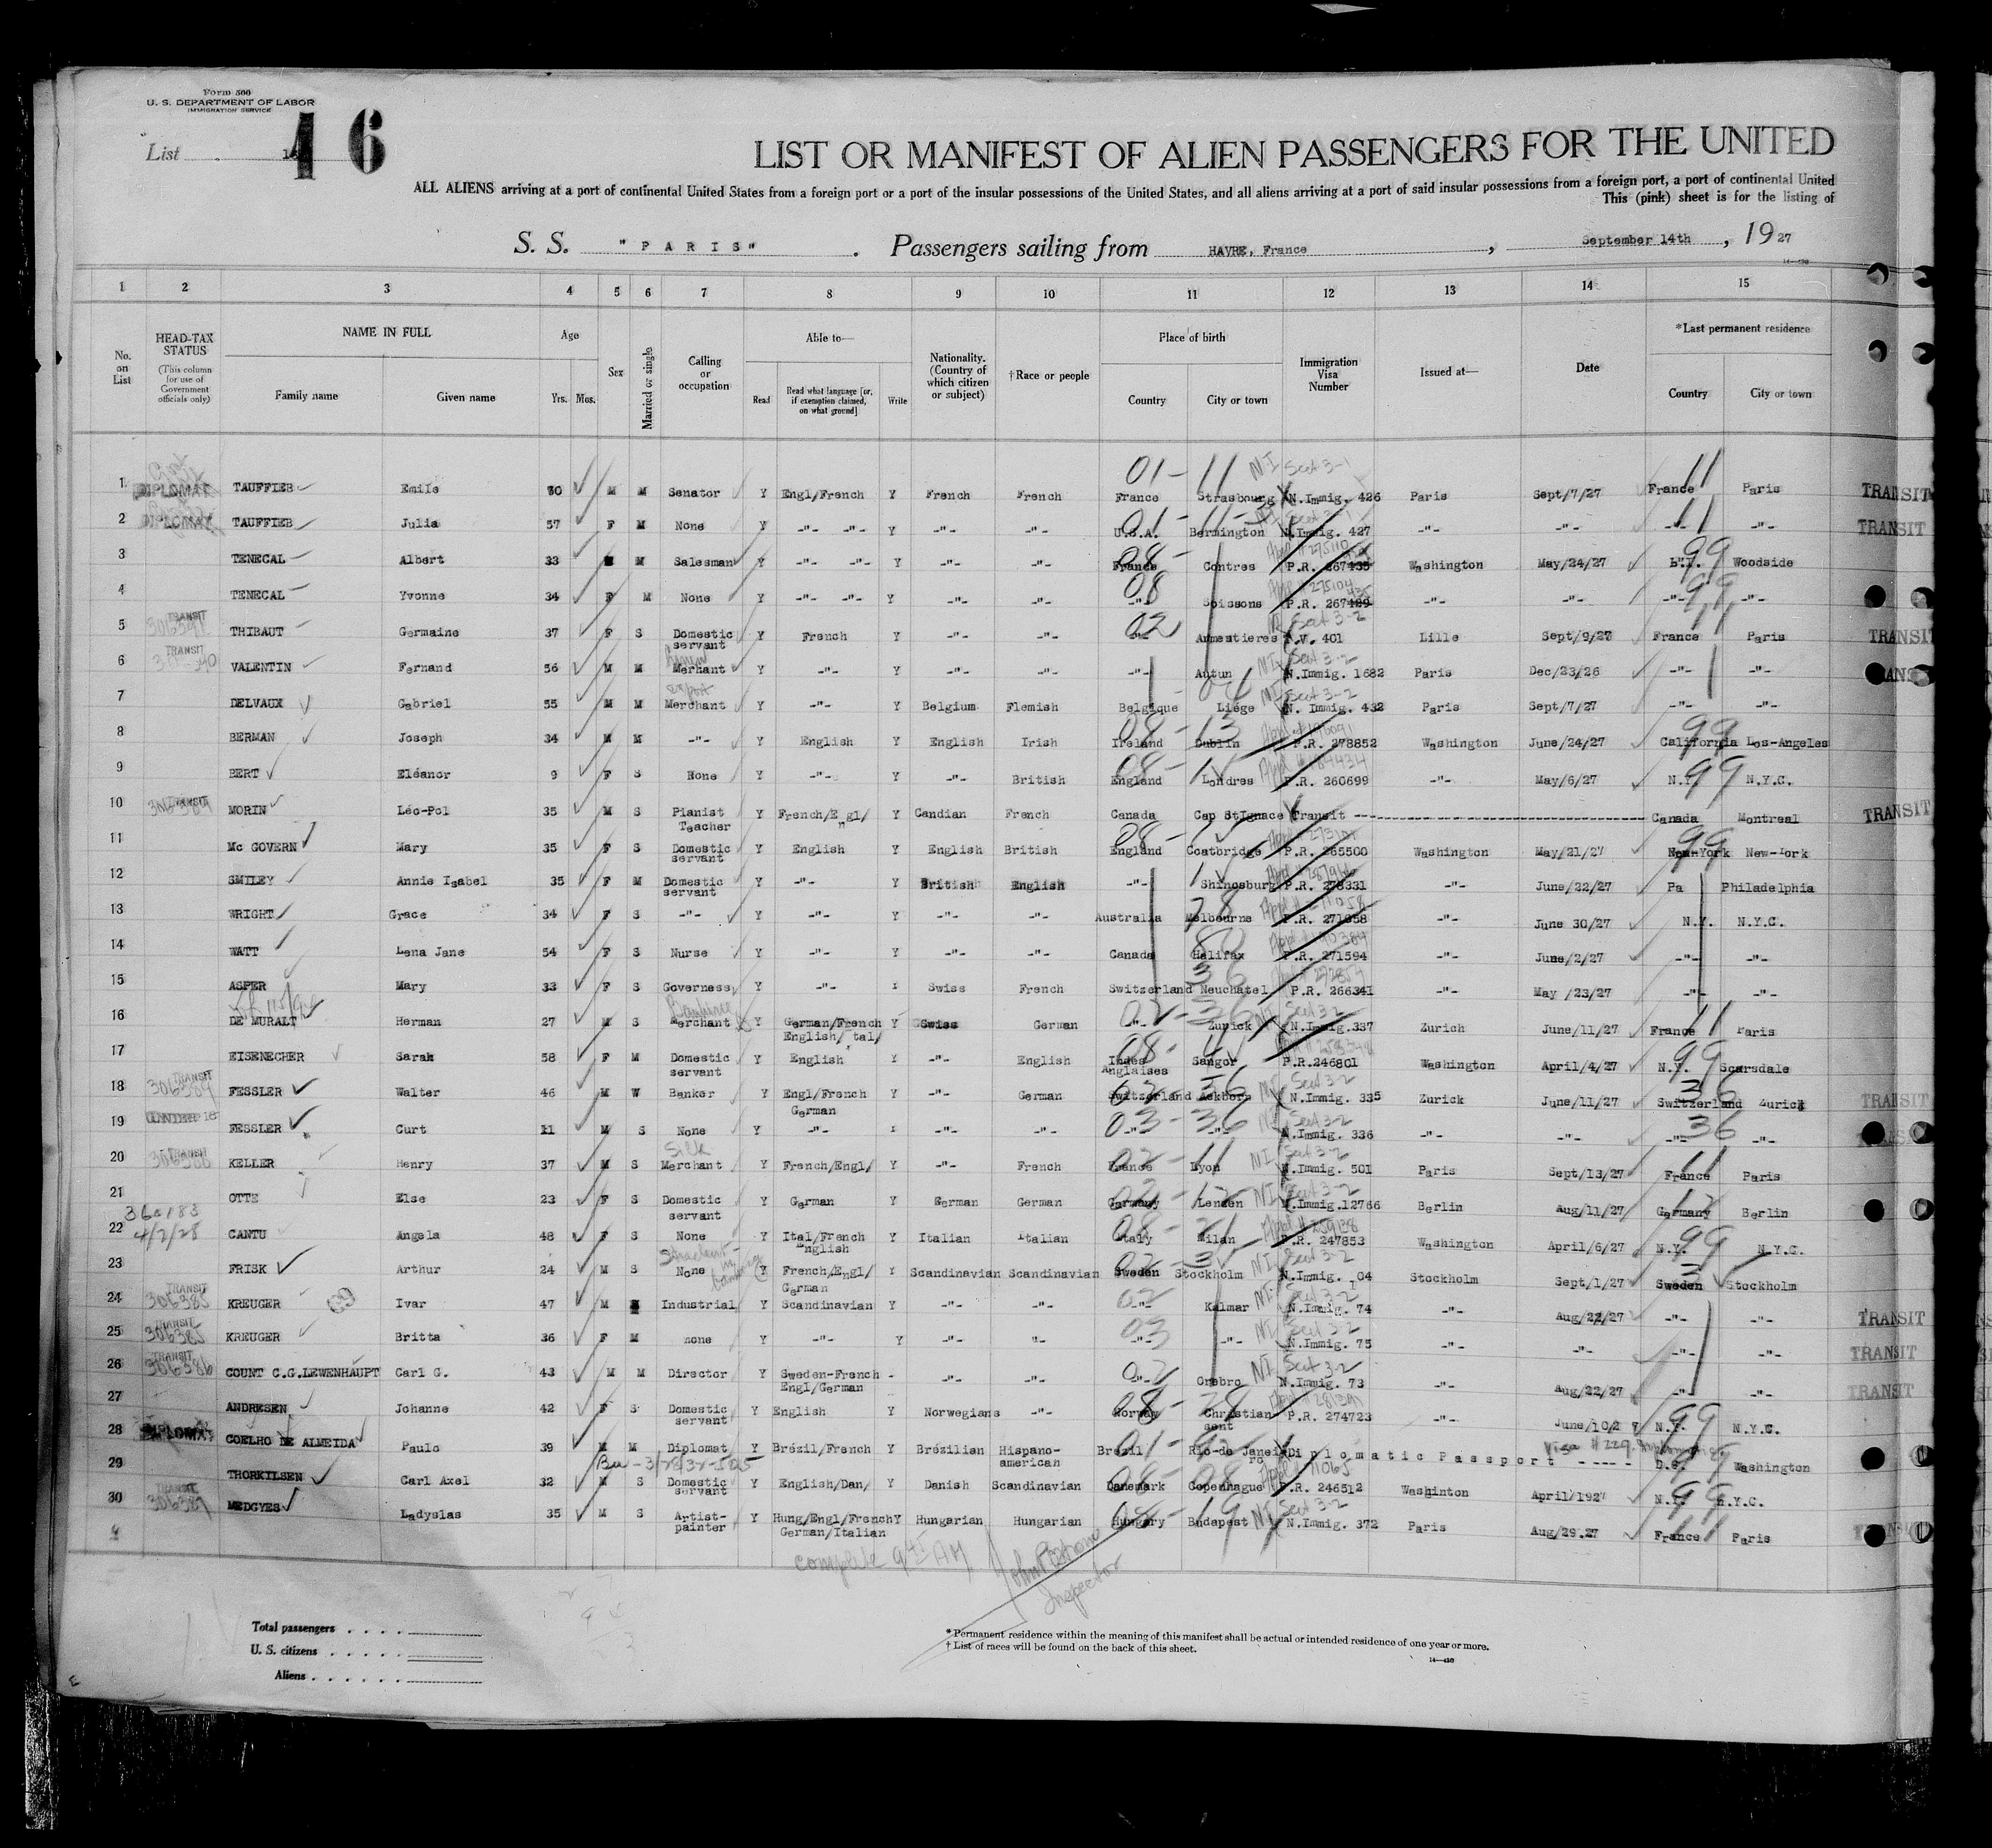 Form 500
U. S. DEPARTMENT OF LABOR
IMMIGRATION SERVICE
List 16
LIST OR MANIFEST OF ALIEN PASSENGERS FOR THE UNITED
ALL ALIENS arriving at a port of continental United States from a foreign port or a port of the insular possessions of the United States, and all aliens arriving at a port of said insular possessions from a foreign port, a port of continental United
This (pink) sheet is for the listing of
S. S. "PARIS". Passengers sailing from HAVRE, France, September 14th, 1927
1 2 3 4 5 6 7 8 9 10 11 12 13 14 15
No. on List HEAD-TAX STATUS (This column for use of Government officials only) NAME IN FULL Family name Given name Age Yrs. Mos. Sex Married or single Calling or occupation Able to— Read Read what language [or, if exemption claimed, on what ground] Write Nationality. (Country of which citizen or subject) †Race or people Place of birth Country City or town Immigration Visa Number Issued at— Date *Last permanent residence Country City or town
1 DIPLOMAT TAUFFIEB Emile M M Senator Y Engl/French Y French French France Strasbourg N.Immig. 426 Paris Sept/7/27 France Paris TRANSIT
2 DIPLOMAT TAUFFIEB Julia 57 F M None Y -"- -"- Y -"- -"- U.S.A. Bermington N.Immig. 427 -"- -"- -"- -"- TRANSIT
3 TENECAL Albert 33 M Salesman Y -"- -"- Y -"- -"- France Contres P.R. 267435 Washington May/24/27 Woodside
4 TENECAL Yvonne 34 F M None Y -"- -"- Y -"- -"- -"- Soissons P.R. -"- -"- -"- -"-
5 TRANSIT THIBAUT Germaine 37 F S Domestic servant Y French Y -"- -"- Armestieres 401 Lille Sept/9/27 France Paris TRANSIT
6 TRANSIT VALENTIN Fernand 56 M M Merhant Y -"- Y -"- -"- Autun N.Immig. 1682 Paris Dec/23/26 -"- -"-
7 DELVAUX Gabriel 55 M M Merchant Y -"- Y Belgium Flemish Belgique Liége N. Immig. 432 Paris Sept/7/27 -"- -"-
8 BERMAN Joseph 34 M M -"- Y English Y English Irish Ireland Dublin P.R. 278852 Washington June/24/27 California Los-Angeles
9 BERT Eléanor 9 F S None Y -"- Y -"- British England Londres P.R. 260699 -"- May/6/27 N.Y. N.Y.C.
10 TRANSIT MORIN Léo-Pol 35 M S Pianist Teacher Y French/Engl/ Y Candian French Canada Cap StIgnace Transit Canada Montreal TRANSIT
11 Mc GOVERN Mary 35 F S Domestic servant Y English Y English British England Coatbridge P.R. 265500 Washington May/21/27 New-York New-York
12 SMILEY Annie Isabel 35 F M Domestic servant Y -"- Y British English -"- Shinosburg P.R. 278331 -"- June/22/27 Pa Philadelphia
13 WRIGHT Grace 34 F S -"- Y -"- Y -"- -"- Australia Melbourne P.R. 271858 -"- June 30/27 N.Y. N.Y.C.
14 WATT Lena Jane 54 F S Nurse Y -"- Y -"- -"- Canada Halifax P.R. 271594 -"- June/2/27 -"- -"-
15 ASPER Mary 33 F S Governess Y -"- Swiss French Switzerland Neuchatel P.R. 266341 -"- May /23/27 -"- -"-
16 DE MURALT Herman 27 M S Merchant Y German/French English/Ital/ Y Swiss German -"- Zurick N.Immig.337 Zurich June/11/27 France Paris
17 EISENECHER Sarah 58 F M Domestic servant Y English Y -"- English Indes Anglaises Sangor P.R.246801 Washington April/4/27 N.Y. Scarsdale
18 TRANSIT FESSLER Walter 46 M W Banker Y Engl/French German Y -"- German Switzerland N.Immig. 335 Zurick June/11/27 Switzerland Zurick TRANSIT
19 FESSLER Curt 11 M S None Y -"- -"- -"- N.Immig. 336 -"- -"- -"- -"-
20 TRANSIT KELLER Henry 37 M S Silk Merchant Y French/Engl/ Y -"- French France Lyon N.Immig. 501 Paris Sept/13/27 France Paris
21 OTTE Else 23 F S Domestic servant Y German Y German German Germany Lensen N.Immig.12766 Berlin Aug/11/27 Germany Berlin
4/2/28
22 CANTU Angela 48 F S None Y Ital/French English Y Italian Italian Italy Milan P.R. 247853 Washington April/6/27 N.Y. N.Y.C.
23 FRISK Arthur 24 M S None Y French/Engl/ German Y Scandinavian Scandinavian Sweden Stockholm N.Immig. 104 Stockholm Sept/1/27 Sweden Stockholm
24 TRANSIT 306385 KREUGER Ivar 47 M Industrial Y Scandinavian Y -"- -"- -"- Kalmar N.Immig. 74 -"- Aug/22/27 -"- -"- TRANSIT
25 TRANSIT 306385 KREUGER Britta 36 F M none Y -"- Y -"- "- -"- -"- N.Immig. 75 -"- -"- -"- -"- TRANSIT
26 TRANSIT 306386 COUNT C.G.LEWENHAUPT Carl G. 43 M M Director Y Sweden-French Engl/German - -"- -"- Orebro N.Immig. 73 -"- Aug/22/27 -"- -"- TRANSIT
27 ANDRESEN Johanne 42 F S Domestic servant Y English Y Norwegians -"- Norway Christian sent P.R. 274723 -"- N.Y. N.Y.C.
28 DIPLOMAT COELHO DE ALMEIDA Paulo 39 M M Diplomat Y Brézil/French Y Brézilien Hispano-american Brézil Rio-de Janeiro Diplomatic Passport D.C. Washington
29 THORKILSEN Carl Axel 32 M S Domestic servant Y English/Dan/ Y Danish Scandinavian Danemark Copenhague P.R. 246512 Washinton April/192 N.Y. N.Y.C.
30 TRANSIT 306387 MEDGYES Ladyslas 35 M S Artist-painter Y Hung/Engl/French German/Italian Y Hungarian Hungarian Hungary Budapest N.Immig. 372 Paris Aug/29.27 France Paris
complete
Inspector
Total passengers
U. S. citizens
Aliens
* Permanent residence within the meaning of this manifest shall be actual or intended residence of one year or more.
† List of races will be found on the back of this sheet.